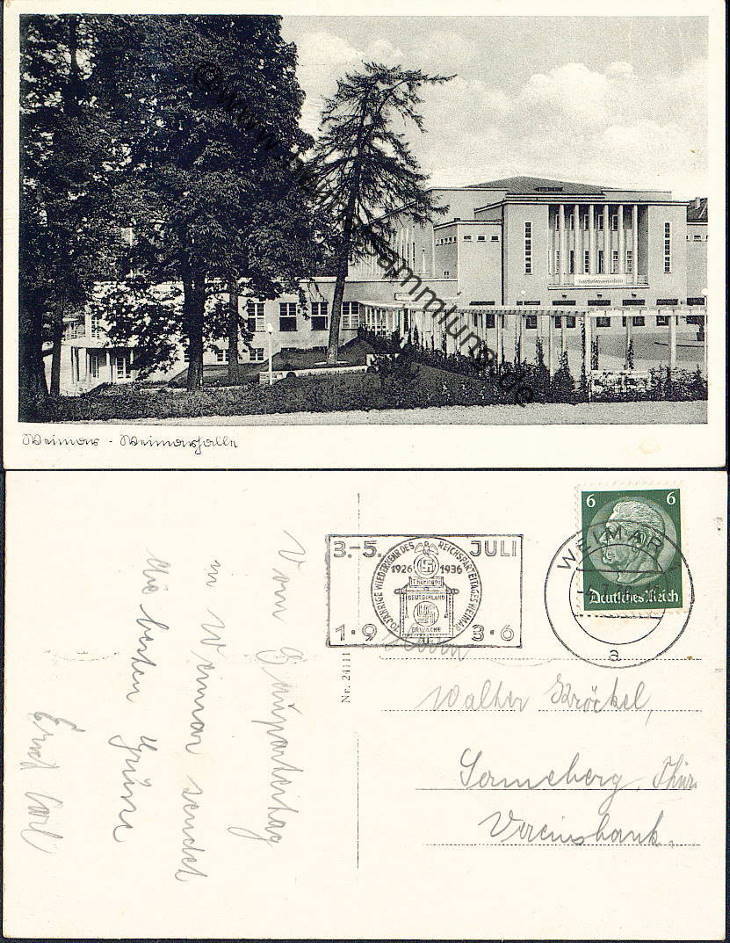 ©www.
Sammlung.de
Weimar - Weimarhalle
Vom Gauparteitag
in Weimar sendet
die besten Grüße
Ernst Carl
Nr. 24111
3.-5. JULI
10 JÄHRIGE WIEDERKEHR DES REICHSPARTEITAGES WEIMAR
1926 1936
THÜRINGEN
DEUTSCHLAND
ERWACHE
1·9 3·6
6 6
Deutsches Reich
WEIMAR
a
Herrn
Walter Kröckel,
Sonneberg, Thür.
Vereinsbank.